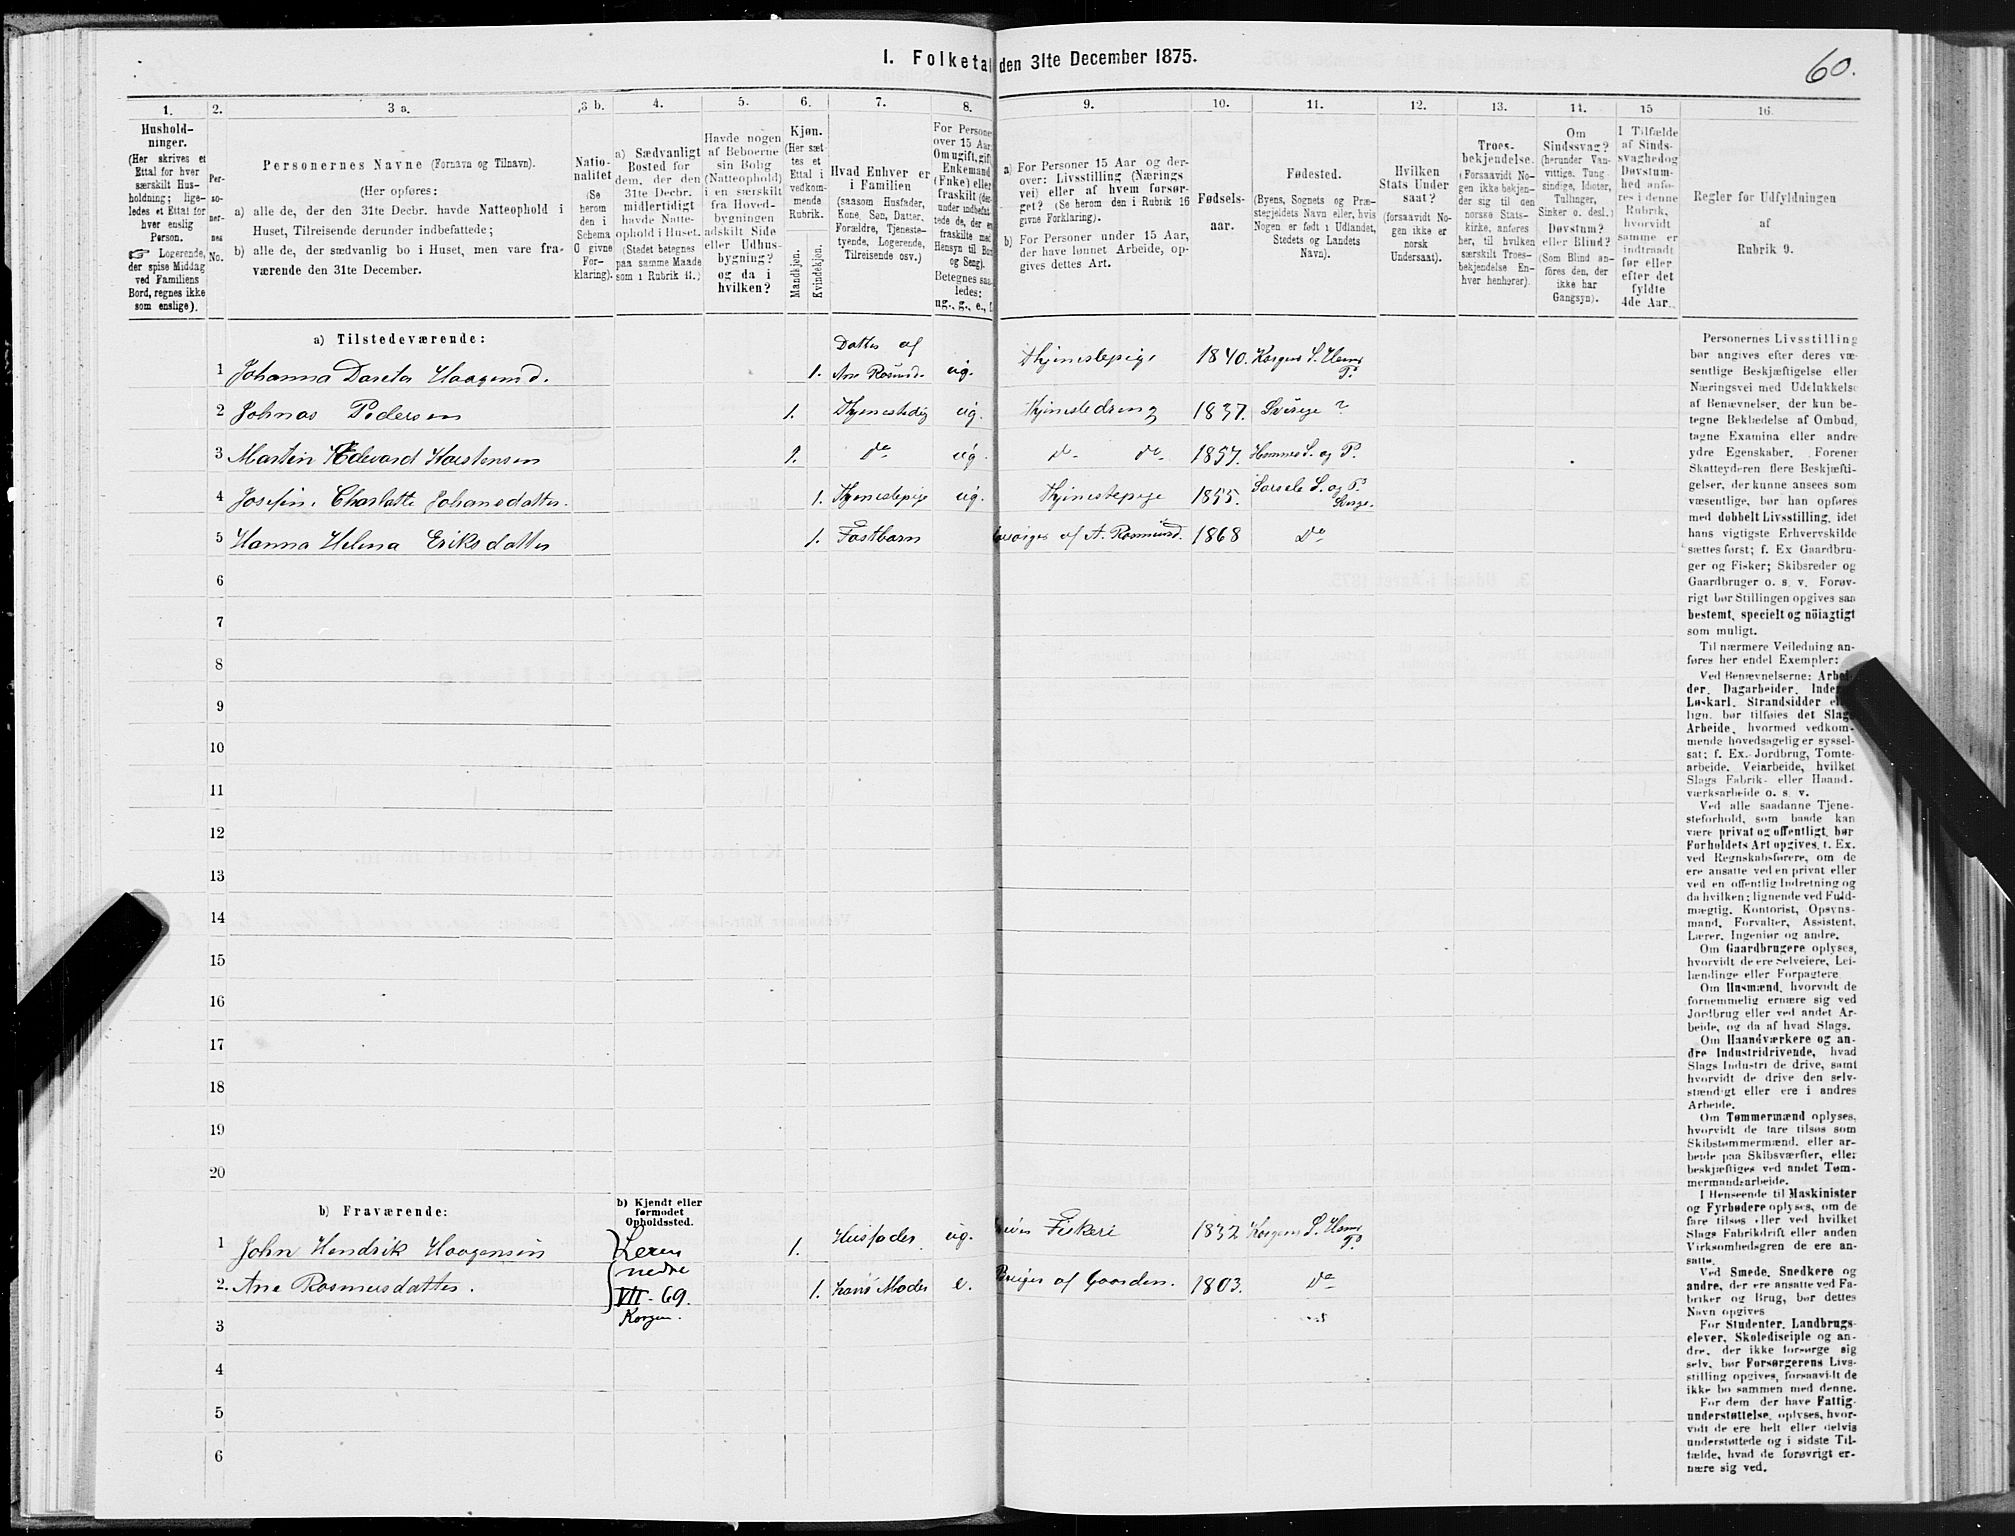 I. Folketal den 31te December 1875.
60.
1. 2. 3 a. 3 b. 4. 5. 6. 7. 8. 9. 10. 11. 12. 13. 14. 15 16.
Hushold-
ninger.
(Her skrives et
Ettal for hver
særskilt Hus-
holdning; lige-
ledes et Ettal for
hver enslig
Person.
☞ Logerende,
der spise Middag
ved Familiens
Bord, regnes ikke
som enslige).
Per-
so-
ner-
nes
No.
Personernes Navne (Fornavn og Tilnavn).
(Her opføres:
a) alle de, der den 31te Decbr. havde Natteophold i
Huset, Tilreisende derunder indbefattede;
b) alle de, der sædvanlig bo i Huset, men vare fra-
værende den 31te December.
Natio-
nalitet
(Se
herom
den i
Schema
O givne
For-
klaring).
a) Sædvanligt
Bosted for
dem, der den
31te Decbr.
midlertidigt
havde Natte-
ophold i Huset.
(Stedet betegnes
paa samme Maade
som i Rubrik 11.)
Havde nogen
af Beboerne
sin Bolig
(Natteophold)
i en særskilt
fra Hoved-
bygningen
adskilt Side
eller Udhus-
bygning?
og da i
hvilken?
Kjøn.
(Her sæt-
tes et
Ettal i
vedkom-
mende
Rubrik.
Mandkjøn.
Kvindekjøn.
Hvad Enhver er
i Familien
(saasom Husfader,
Kone, Søn, Datter,
Forældre, Tjeneste-
tyende, Logerende,
Tilreisende osv.)
For Personer
over 15 Aar:
Om ugift, gift,
Enkemand
(Enke) eller
fraskilt (der-
under indbefat-
tede de, der ere
fraskilte med
Hensyn til Bord
og Seng).
Betegnes saa-
ledes:
ug., g., e., f.
a) For Personer 15 Aar og der-
over: Livsstilling (Nærings-
vei) eller af hvem forsør-
get? (Se herom den i Rubrik 16
givne Forklaring).
b) For Personer under 15 Aar,
der have lønnet Arbeide, op-
gives dettes Art.
Fødsels-
aar.
Fødested.
(Byens, Sognets og Præ-
stegjeldets Navn eller, hvis
Nogen er født i Udlandet,
Stedets og Landets
Navn).
Hvilken
Stats Under-
saat?
(forsaavidt No-
gen ikke er
norsk
Undersaat).
Troes-
bekjendelse.
(Forsaavidt Nogen
ikke bekjen-
der sig til den
norske Stats-
kirke, anføres
her, til hvilken
særskilt Troes-
bekjendelse En-
hver henhører).
Om
Sindssvag?
(herunder Van-
vittige, Tung-
sindige, Idioter,
Tullinger,
Sinker o. desl.)
Døvstum?
eller Blind?
(Som Blind an-
føres den, der
ikke har
Gangsyn).
I Tilfælde
af Sinds-
svaghed og
Døvstum-
hed anfø-
res i denne
Rubrik,
hvorvidt
samme er
indtraadt
før eller
efter det
fyldte
4de Aar.
Regler for Udfyldningen
af
Rubrik 9.
a) Tilstedeværende:
1 Johanna Dorelea Haagensd. 1. Datter af Ane Rosmd. ug. Thjenestepige 1840. Korgens S. Hemnæs P.
2 Johnas Pedersen 1. ug. 1837. Sverige ?
3 Martin Edevard Karstensen 1. do ug. do do 1857. Hemnes S. og P.
4 Josefin. Charlotte Johansdatter. 1. Thjenestepige ug. Thjenestepige 1855. Sorsele S. og P.
5 Hanna Helena Eriksdatter 1. Fostbarn af A. Rosmusd. 1868 Do
6
7
8
9
10
11
12
13
14
15
16
17
18
19
20
b) Fraværende:
b) Kjendt eller
formodet
Opholdssted.
1 John Hendrik Haagensen Leren 1. Husfader ug. Fiskeri 1832 Korgens S. Hemnæs P.
nedre
2. Ane Rasmusdatter. VII-69. 1. hans Moder e. af Gaarden. 1803. Do
Korgen.
3
4
5
6
Personernes Livsstilling
bør angives efter deres væ-
sentlige Beskjæftigelse eller
Næringsvei med Udelukkelse
af Benævnelser, der kun be-
tegne Beklædelse af Ombud,
tagne Examina eller andre
ydre Egenskaber. Forener
Skatteyderen flere Beskjæfti-
gelser, der kunne ansees som
væsentlige, bør han opføres
med dobbelt Livsstilling, idet
hans vigtigste Erhvervskilde
sættes først; f. Ex Gaardbru-
ger og Fisker; Skibsreder og
Gaardbruger o. s. v. Forøv-
rigt bør Stillingen opgives saa
bestemt, specielt og nöiagtigt
som muligt.
Til nærmere Veiledning an-
føres her endel Exempler:
Ved Benævnelserne: Arbei-
der, Dagarbeider, Inderst,
Løskarl, Strandsidder eller
lign. bør tilføies det Slags
Arbeide, hvormed vedkom-
mende hovedsagelig er syssel-
sat; f. Ex. Jordbrug, Tomte-
arbeide, Veiarbeide, hvilket
Slags Fabrik- eller Haand-
værksarbeide o. s. v.
Ved alle saadanne Tjene-
steforhold, som baade kan
være privat og offentligt, bør
Forholdets Art opgives, f. Ex.
ved Regnskabsførere, om de
ere ansatte ved en privat eller
ved en offentlig Indretning og
da hvilken; lignende ved Fuld-
mægtig, Kontorist, Opsyns-
mand, Forvalter, Assistent,
Lærer, Ingeniør og andre.
Om Gaardbrugere oplyses,
hvorvidt de ere Selveiere, Lei-
lændinge eller Forpagtere.
Om Husmænd, hvorvidt de
fornemmelig ernære sig ved
Jordbrug eller ved andet Ar-
beide, og da af hvad Slags.
Om Haandværkere og an-
dre Industridrivende, hvad
Slags Industri de drive, samt
hvorvidt de drive den selv-
stændigt eller ere i andres
Arbeide.
Om Tømmermænd oplyses,
hvorvidt de fare tilsøs som
Skibstømmermænd, eller ar-
beide paa Skibsværfter, eller
beskjæftiges ved andet Tøm-
mermandsarbeide.
I Henseende til Maskinister
og Fyrbødere oplyses, om de
fare tilsøs eller ved hvilket
Slags Fabrikdrift eller anden
Virksomhedsgren de ere an-
satte.
Ved Smede, Snedkere og
andre, der ere ansatte ved Fa-
briker og Brug, bør dettes
Navn opgives
For Studenter, Landbrugs-
elever, Skoledisciple og an-
dre, der ikke forsørge sig
selv, bør Forsørgerens Livs-
stilling opgives, forsaavidt de
ikke bo sammen med denne.
For dem der have Fattig-
understøttelse, oplyses, hvor-
vidt de ere helt eller delvis
understøttede og i sidste Til-
fælde, hvad de forøvrigt er-
nære sig ved.